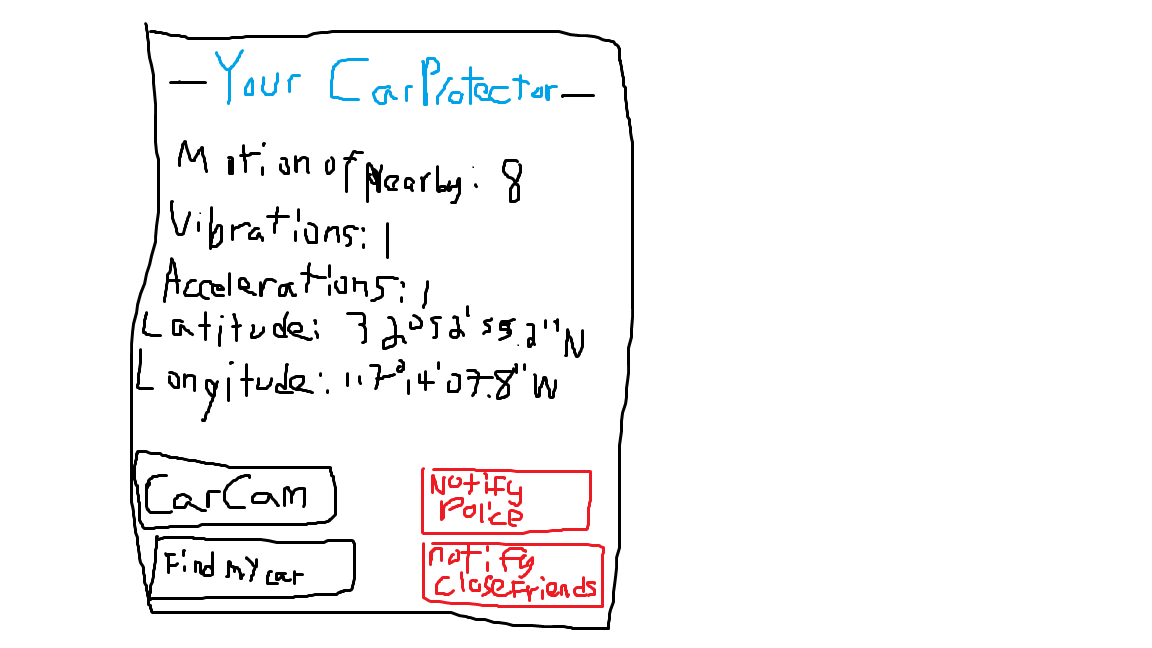 — Your CarProtector —
Motion of Nearby: 8
Vibrations: 1
Accelerations: 1
Latitude: 32°52'55.2"N
Longitude: 117°14'07.8"W
CarCam
Notify
Police
Find my car
notify
closeFriends